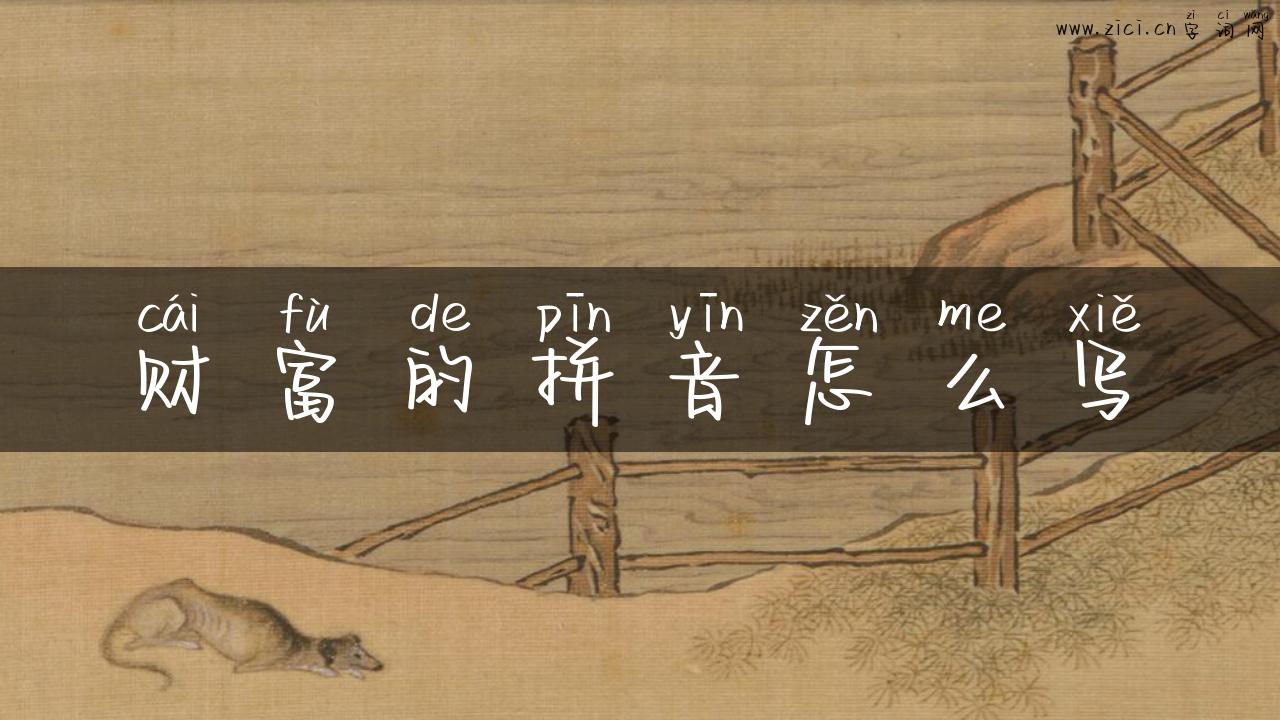 zi ci wang
www.zici.cn字词网
cái fù de pīn yīn zěn me xiě
财富的拼音怎么写